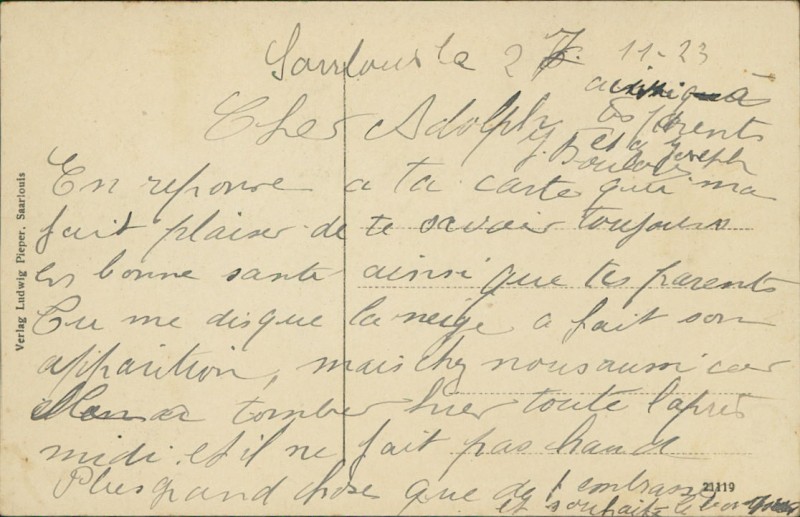 Sarrlouis le 2 11-23
Cher Adolph
En reponse a ta carte qui ma
fait plaisir de te savoir toujours
en bonne sante ainsi que tes parents
Tu me dis que la neige a fait son
apparition, mais chez nous aussi car
tomber hier toute l'après
midi. et il ne fait pas chaud
Plus grand chose que de t embrasser
et souhaite le bon
ainsi qua
tes parents
et a Joseph
J. Boulou
Verlag Ludwig Pieper, Saarlouis
21119